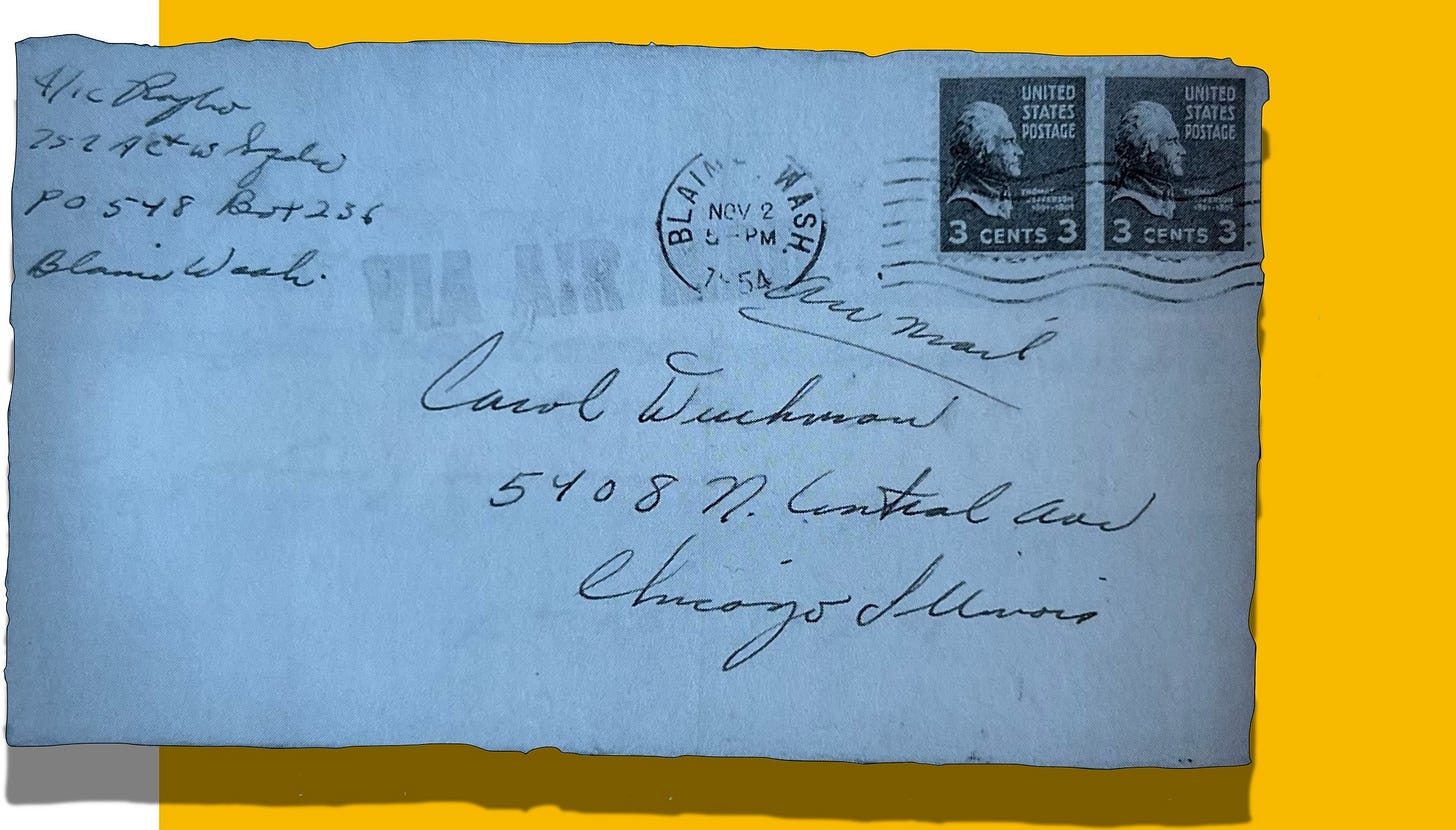 A/1c
752 AC+W
PO 548 Box 236
Blaine Wash.
BLAIN WASH.
NOV 2
5 - PM
1954
UNITED
STATES
POSTAGE
THOMAS
JEFFERSON
3 CENTS 3
UNITED
STATES
POSTAGE
THOMAS
JEFFERSON
3 CENTS 3
AIR AIR
Air mail
Carol
5408 N. Central Ave
Chicago Illinois